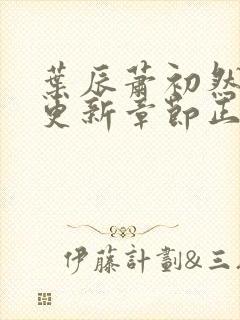 葉辰蕭初然
更新章節正
伊藤計劃&三